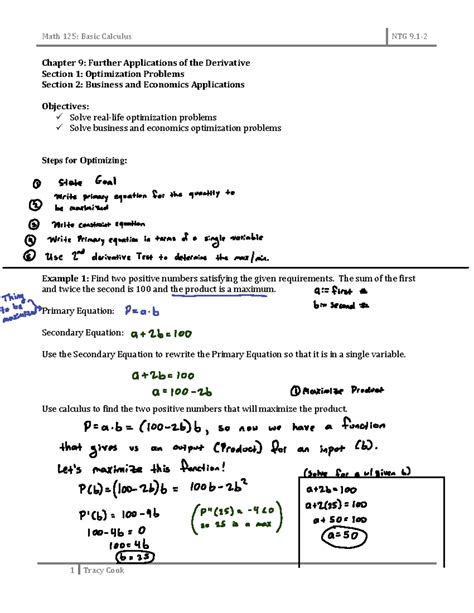 Math 125: Basic Calculus NTG 9.1-2
Chapter 9: Further Applications of the Derivative
Section 1: Optimization Problems
Section 2: Business and Economics Applications
Objectives:
✓ Solve real-life optimization problems
✓ Solve business and economics optimization problems
Steps for Optimizing:
① State Goal
② Write primary equation for the quantity to
be maximized
③ Write constraint equation
④ Write Primary equation in terms of a single variable
⑤ Use 2nd derivative Test to determine the max/min.
Example 1: Find two positive numbers satisfying the given requirements. The sum of the first
and twice the second is 100 and the product is a maximum.
a:= first #
b:= second #
Thing
to be
maximized
Primary Equation: P=a·b
Secondary Equation: a+2b=100
Use the Secondary Equation to rewrite the Primary Equation so that it is in a single variable.
a+2b=100
a=100-2b
① Maximize Product
Use calculus to find the two positive numbers that will maximize the product.
P=a·b = (100-2b)b, so now we have a function
that gives us an output (Product) for an input (b).
Let's maximize this function!
P(b)=(100-2b)b = 100b-2b²
P'(b) = 100-4b
100-4b = 0
100=4b
b=25
P"(25) = -4<0
so 25 is a max
(Solve for a w/given b)
a+2b=100
a+2(25)=100
a+50=100
a=50
1 Tracy Cook